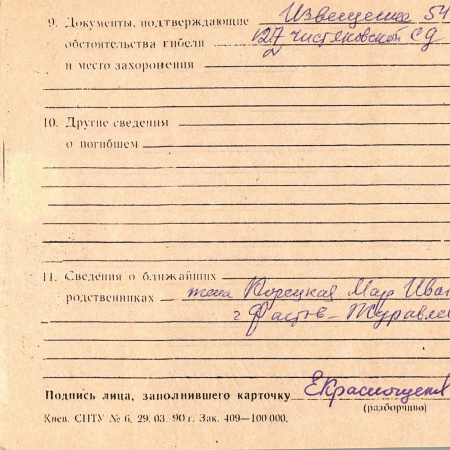 9. Документы, подтверждающие Извещение 54
обстоятельства гибели 127 Чистяковской СД
и место захоронения
10. Другие сведения
о погибшем
11. Сведения о ближайших
родственниках жена Корецкая Мар Иван
г Фастов - Журавлев
Подпись лица, заполнившего карточку ЕКраснощеков
(разборчиво)
Киев. СПТУ № 6. 29. 03. 90 г. Зак. 409—100 000.